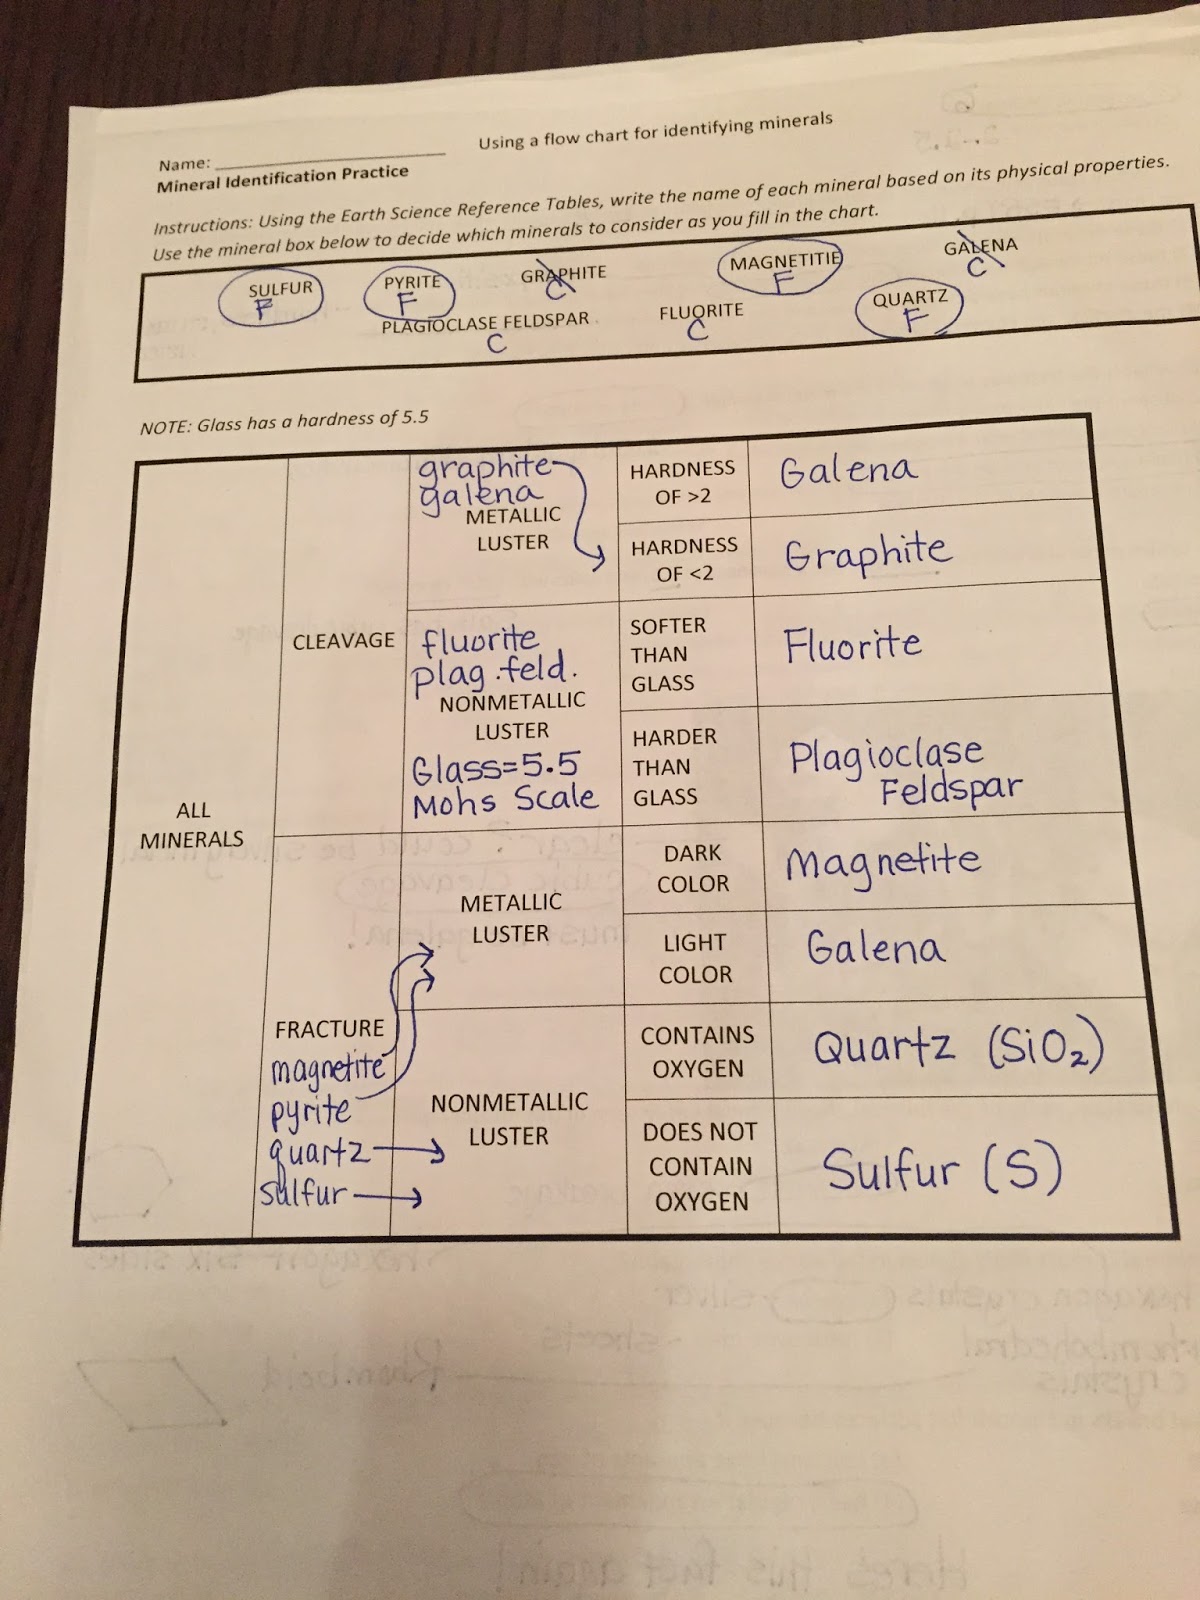 Using a flow chart for identifying minerals
Name:
Mineral Identification Practice
Instructions: Using the Earth Science Reference Tables, write the name of each mineral based on its physical properties.
Use the mineral box below to decide which minerals to consider as you fill in the chart.
SULFUR PYRITE GRAPHITE MAGNETITIE GALENA
F F C F C
PLAGIOCLASE FELDSPAR FLUORITE QUARTZ
C C F
NOTE: Glass has a hardness of 5.5
ALL
MINERALS
CLEAVAGE
graphite
galena
METALLIC
LUSTER
HARDNESS
OF >2
Galena
HARDNESS
OF <2
Graphite
fluorite
plag.feld.
NONMETALLIC
LUSTER
Glass=5.5
Mohs Scale
SOFTER
THAN
GLASS
Fluorite
HARDER
THAN
GLASS
Plagioclase
Feldspar
FRACTURE
magnetite
pyrite
quartz
sulfur
METALLIC
LUSTER
DARK
COLOR
Magnetite
LIGHT
COLOR
Galena
NONMETALLIC
LUSTER
CONTAINS
OXYGEN
Quartz (SiO₂)
DOES NOT
CONTAIN
OXYGEN
Sulfur (S)